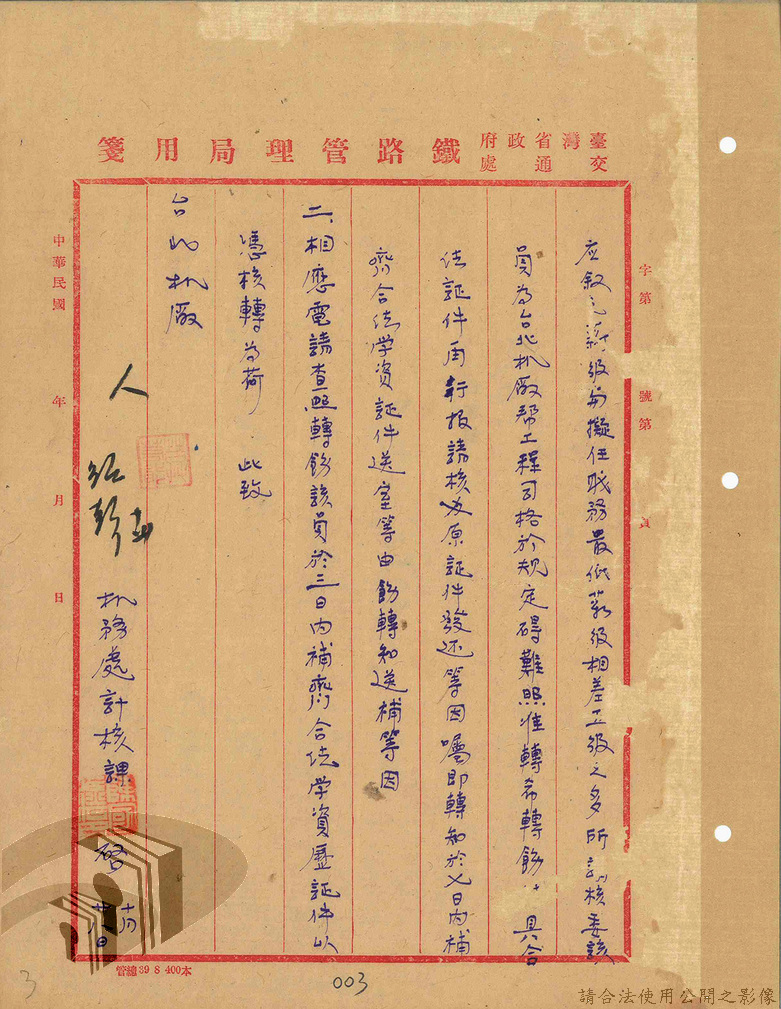 臺灣省政府
交通處
鐵路管理局用箋
字第 號第 頁
应叙之薪级与擬任职務最低薪级相差五级之多所請核委該
員為台北机廠帮工程司格於规定碍難照准转希轉飭 具合
法証件再行报請核办原証件發还等因嘱即轉知於七日内補
齊合法学資証件送室等由飭轉知送補等因
二、相應電請查照轉飭該員於三日内補齊合法学資歷証件以
憑核轉為荷 . 此致
台北机廠
人
机務處計核課
啓
十月
廿八日
中華民國 年 月 日
管總 39 8 400本
003
3
請合法使用公開之影像